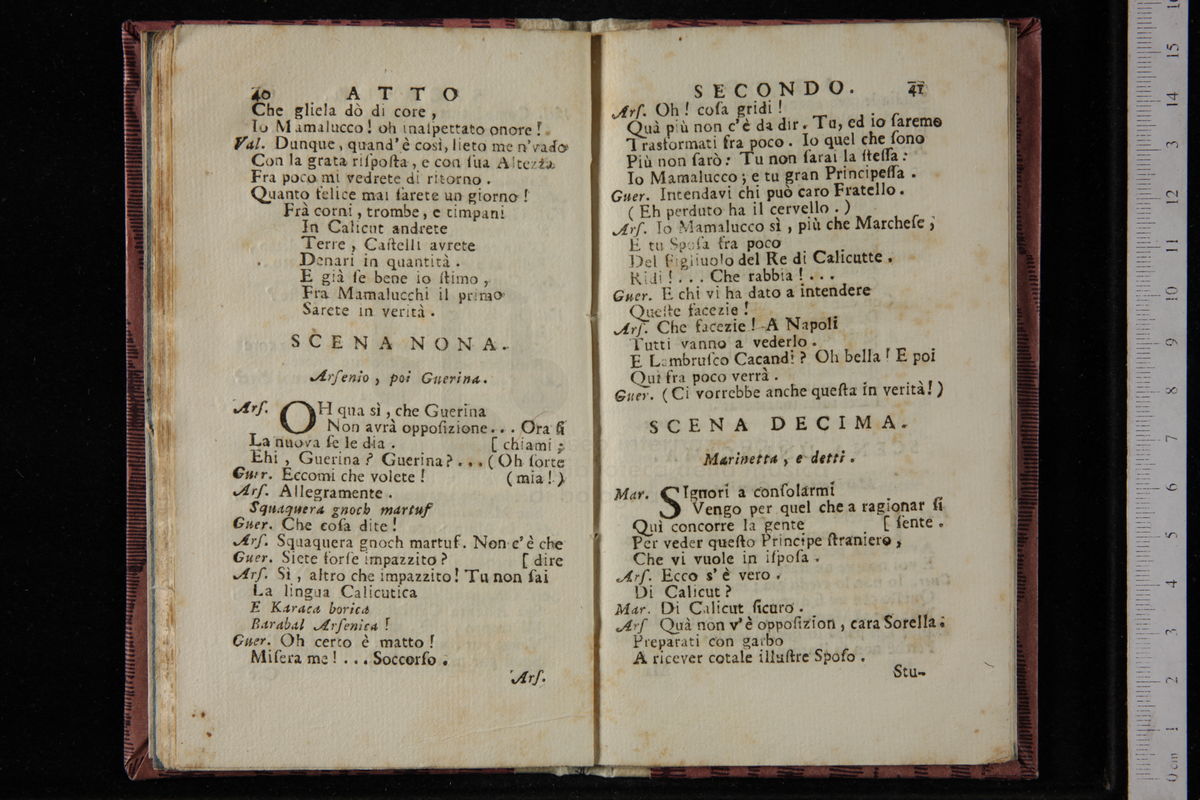 40 ATTO
Che gliela dò di core,
Io Mamalucco! oh inaſpettato onore!
Val. Dunque, quand'è così, lieto me n'vado
Con la grata riſpoſta, e con ſua Altezza
Fra poco mi vedrete di ritorno.
Quanto felice mai ſarete un giorno!
Frà corni, trombe, e timpani
In Calicut andrete
Terre, Caſtelli avrete
Denari in quantità.
E già ſe bene io ſtimo,
Fra Mamalucchi il primo
Sarete in verità.
SCENA NONA.
Arſenio, poi Guerina.
Arſ. OH qua sì, che Guerina
Non avrà oppoſizione... Ora ſi
La nuova ſe le dia. [chiami;
Ehi, Guerina? Guerina?... (Oh ſorte
Guer. Eccomi che volete! (mia!)
Arſ. Allegramente.
Squaquera gnoch martuf
Guer. Che coſa dite!
Arſ. Squaquera gnoch martuf. Non c'è che
Guer. Siete forſe impazzito? [dire
Arſ. Sì, altro che impazzito! Tu non ſai
La lingua Calicutica
E Karaca borica
Barabal Arſenica!
Guer. Oh certo è matto!
Miſera me!... Soccorſo.
Arſ.
SECONDO. 41
Arſ. Oh! coſa gridi!
Quà più non c'è da dir. Tu, ed io ſaremo
Trasformati fra poco. Io quel che ſono
Più non ſarò: Tu non ſarai la ſteſſa:
Io Mamalucco; e tu gran Principeſſa.
Guer. Intendavi chi può caro Fratello.
(Eh perduto ha il cervello.)
Arſ. Io Mamalucco sì, più che Marcheſe;
E tu Spoſa fra poco
Del figliuolo del Re di Calicutte.
Ridi!... Che rabbia!...
Guer. E chi vi ha dato a intendere
Queſte facezie!
Arſ. Che facezie! A Napoli
Tutti vanno a vederlo.
E Lambruſco Cacandi? Oh bella! E poi
Quì fra poco verrà.
Guer. (Ci vorrebbe anche queſta in verità!)
SCENA DECIMA.
Marinetta, e detti.
Mar. SIgnori a conſolarmi
Vengo per quel che a ragionar ſi
Quì concorre la gente [ſente.
Per veder queſto Principe ſtraniero,
Che vi vuole in iſpoſa.
Arſ. Ecco s'è vero.
Di Calicut?
Mar. Di Calicut ſicuro.
Arſ Quà non v'è oppoſizion, cara Sorella:
Preparati con garbo
A ricever cotale illuſtre Spoſo.
Stu-
0 cm 1 2 3 4 5 6 7 8 9 10 11 12 13 14 15